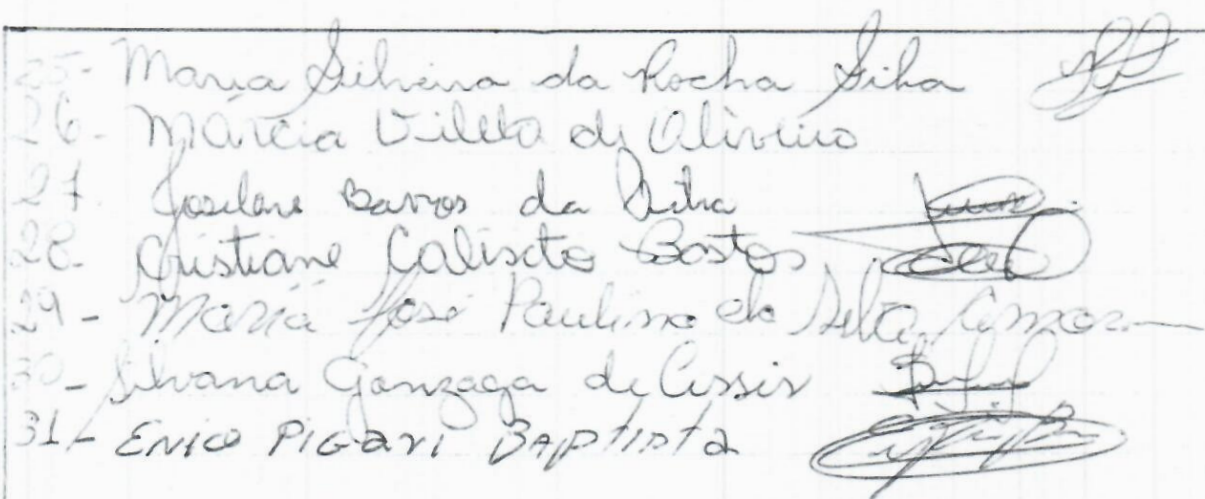 25- Maria Silveira da Rocha Silva
26- Márcia Vilela de Oliveira
27. Joselane Barros da Silva
28- Cristiane Calixto Bastos
29- Maria José Paulino da Silva Amaro
30- Silvana Gonzaga de Assis
31- Enio Pigari Baptista